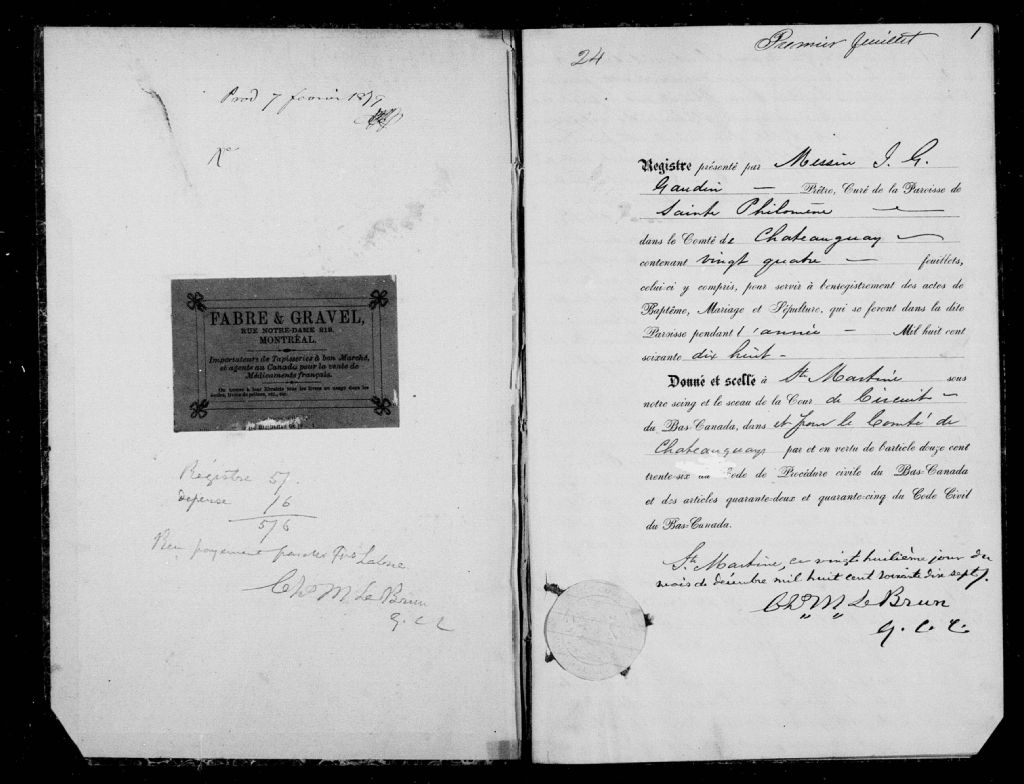 Prod 7 février 1879
No
FABRE & GRAVEL,
RUE NOTRE-DAME 219.
MONTRÉAL.
Importateurs de Tapisseries à bon Marché,
et agents au Canada pour la vente de
Médicaments français.
On trouve à leur librairie tous les livres en usage dans les
écoles, livres de prières, etc., etc.
Régistre 5/.
dépense /6
5/6
Reçu payement
Chs M Le Brun
G. C. C.
24
Premier feuillet
1
Registre présenté par Messire J. G.
Gaudin — Prêtre, Curé de la Paroisse de
Sainte Philomène —
dans le Comté de Chateauguay —
contenant vingt quatre — feuillets,
celui-ci y compris, pour servir à l'enregistrement des actes de
Baptême, Mariage et Sépulture, qui se feront dans la dite
Paroisse pendant l'année — Mil huit cent
soixante dix huit —
Donné et scellé à Ste Martine sous
notre seing et le sceau de la Cour de Circuit —
du Bas-Canada, dans et pour le Comté de
Chateauguay par et en vertu de l'article douze cent
trente-six du Code de Procédure civile du Bas-Canada
et des articles quarante-deux et quarante-cinq du Code Civil
du Bas-Canada.
Ste Martine, ce vingt huitième jour du
mois de décembre mil huit cent soixante dix sept.
Chs M Le Brun
G. C. C.